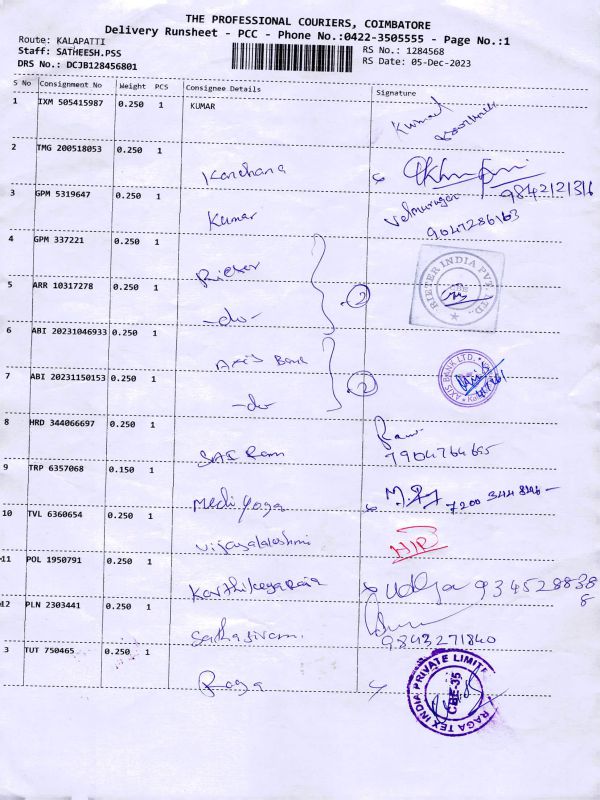 THE PROFESSIONAL COURIERS, COIMBATORE
Delivery Runsheet - PCC - Phone No.:0422-3505555 - Page No.:1
Route: KALAPATTI
RS No.: 1284568
Staff: SATHEESH.PSS
RS Date: 05-Dec-2023
DRS No.: DCJB128456801
S No Consignment No Weight PCS Consignee Details Signature
1 IXM 505415987 0.250 1 KUMAR Kumar
2 TMG 200518053 0.250 1 Kanchana 9842121316
3 GPM 5319647 0.250 1 Kumar Velmurugan
9047286163
4 GPM 337221 0.250 1 Rieter RIETER INDIA PVT. LTD.
5 ARR 10317278 0.250 1 -do- 2
6 ABI 20231046933 0.250 1 Axis Bank AXIS BANK LTD.
7 ABI 20231150153 0.250 1 -do- 2
8 HRD 344066697 0.250 1 SAI Ram
7904764695
9 TRP 6357068 0.150 1 Medi Yoga 7200344846
10 TVL 6360654 0.250 1 Vijayalakshmi
11 POL 1950791 0.250 1 Karthikeyaraja Udhya 9345288388
12 PLN 2303441 0.250 1 Sathasivam
9843271840
3 TUT 750465 0.250 1 Raga RAGA TEX INDIA PRIVATE LIMITE CBE-35